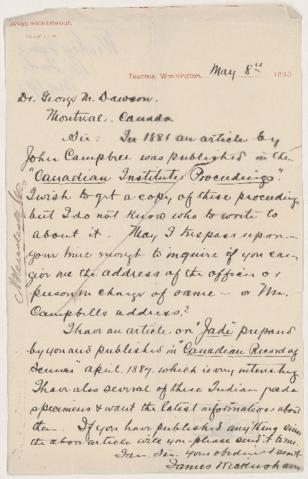 JAMES WICKERSHAM,
Tacoma, Washington, May 8th 189
Dr. George M. Dawson,
Montreal, Canada
Sir: In 1881 an article by
John Campbell was published in the
"Canadian Institute Proceedings"
I wish to get a copy of these proceedings
but I do not know who to write to
about it. May I trespass upon
your time enough to inquire if you can
give me the address of the officer or
person in charge of same — or Mr.
Campbells address?
I have an article on "Jade" prepared
by you and published in "Canadian Record of
Science" April, 1887, which is very interesting
I have also several of these Indian jade
specimens & want the latest information about
them. If you have published anything since
the above article will you please send it to me.
I am, Sir, your obedient servt
James Wickersham